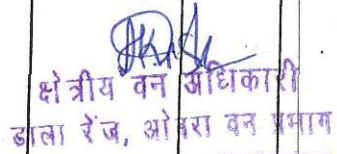 क्षेत्रीय वन अधिकारी
डाला रेंज, ओबरा वन प्रभाग